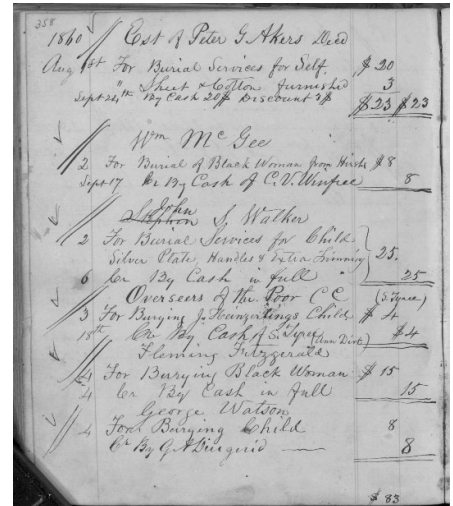 358
1860 Est of Peter G Akers Decd
Aug 1st For Burial Services for Self. $20
" Sheet & Cotton furnished 3
Sept 24th By Cash 20$ Discount 3$ $23 $23
Wm McGee
2 For Burial of Black Woman from Hirsh $8
Sept 17 Cr By Cash of C. V. Winfree 8
John
Stephen S Walker
2 For Burial Services for Child
Silver Plate, Handles & Extra Trimming 25.
6 Cr By Cash in full 25
Overseers of the Poor C C (S. Tyree)
3 For Burying J. Child $4
18th Cr By Cash of S. Tyree $4
Fleming Fitzgerald
4 For Burying Black Woman $15
4 Cr By Cash in full 15
George Watson
4 For Burying Child 8
Cr By G A 8
$83